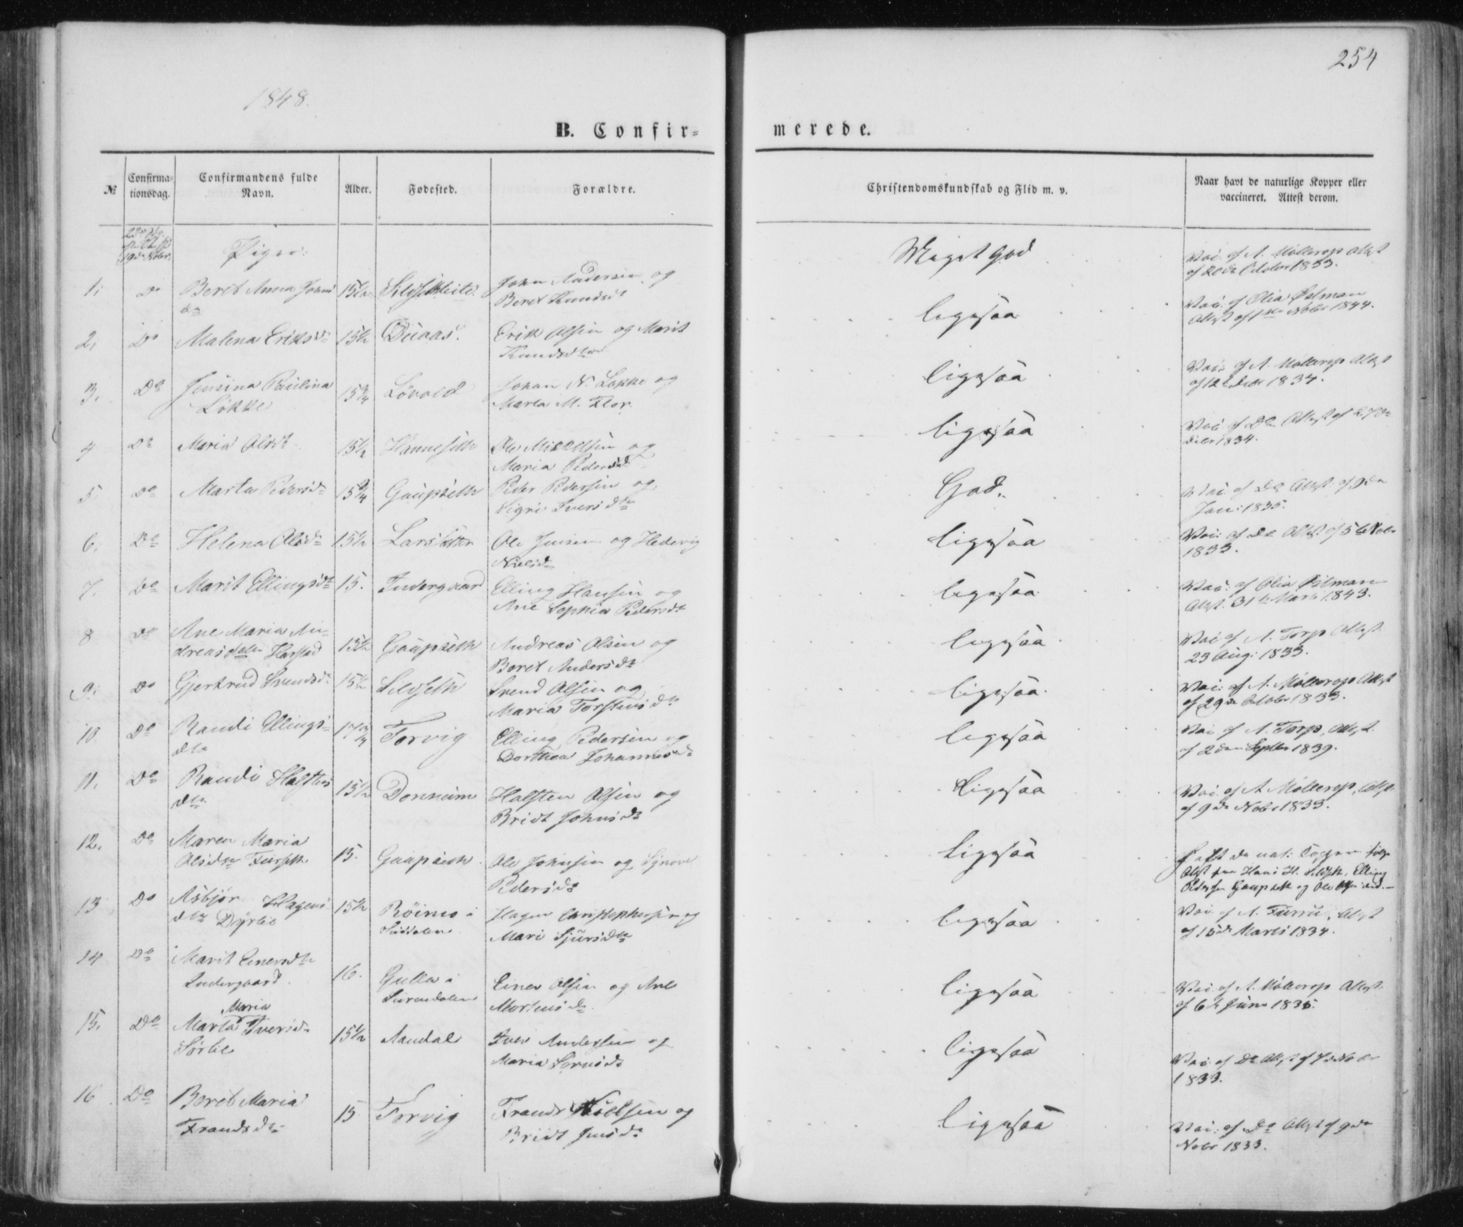 254
1848.
B. Confir= merede.
№ Confirma= tionsdag. Confirmandens fulde Navn. Alder. Fødested. Forældre. Christendomskundskab og Flid m. v. Naar havt de naturlige Kopper eller vaccineret. Attest derom.
Piger.
1, Do Beret Anna Johns dtr 15½ John Andersen og Beret Knudsdt Meget god Vac. af A. Møllerop Attst af October 1833.
2, Do Malena Eriksd: 15½ Duaas. Erik Olsen og Marit Knudsdtr ligesaa Vac. af Olia Østman Attst af Novbr 1844.
3, Do Jensina Paulina Løkke 15¾ Løvold Johan N. Løkke og Marta M. Flor ligesaa Vac. af A. Møllerop Attst af 1834.
4 Do Maria Olsdt. 15½ Hanneseth Ole Mikkelsen og Maria Pedersdt ligesaa Vac. af Do Attst af 1834.
5 Do Marta Pedersdr 15¾ Gaupseth Peder Pedersen og Sigri Iversdtr God. Vac. af Do Attst af 9de Jan: 1835.
6, Do Helena Olsdr 15½ Ole Jensen og Hedevig Nielsdr ligesaa Vac. af Do Attst. af 5te Novbr 1833.
7. Do Marit Ellingsdtr 15. Indergaard Elling Hansen og Ane Sophia Pedersdtr ligesaa Vac. af Olia Østman Attst. 31te Marts 1843.
8 Do Ane Maria An- dreasdatter Harstad 15½ Gaupseth Andreas Olsen og Beret Andersdtr ligesaa Vac. af A. Torp Attst. 23 Aug: 1833.
9. Do Gjertrud Svendsd: 15½ Selseth Svend Olsen og Maria Torstensdtr ligesaa. Vac. af A. Møllerop Attst af 29de October 1833.
10. Do Randi Ellings- dtr Torvig Elling Pedersen og Dorthea Johannesdtr ligesaa Vac. af A. Torp, Attst. af 2den Septbr 1839.
11. Do Randi Halsten dtr 15½ Donheim Halsten Olsen og Bridt Johnsdtr Ligesaa Vac. af A Møllerop, Attst af 9de Novbr 1833.
12. Do Maren Maria Olsdtr Furseth 15. Gaupseth. Ole Johnsen og Synøve Pedersdtr Ligesaa havt de nat: Kopper ifølge Attst fra Hans H. Selseth, Elling Pedersen Gaupseth og Ole
13 Do Asbjør Hagens dtr Dyrlie 15½ Røimo i Hagen Christophersen og Mari Sjursdtr ligesaa Vac. af A. Furru, Attst af 15de Marts 1834.
14 Do Marit Einersdtr Indergaard. 16. Gulla i Surendalen Einer Olsen og Ane Mortensdr ligesaa Vac. af A. Møllerop Attst. af 6te Juni 1835.
15. Do Marta Maria Iversdr Sørlie 15½ Aandal Iver Andersen og Maria ligesaa Vac. af Do Attst af 1833.
16 Do Beret Maria Frandsdtr 15 Torvig Frands Nielsen og Bridt Jensdr ligesaa Vac. af Do Attst af 9de Novbr 1833.